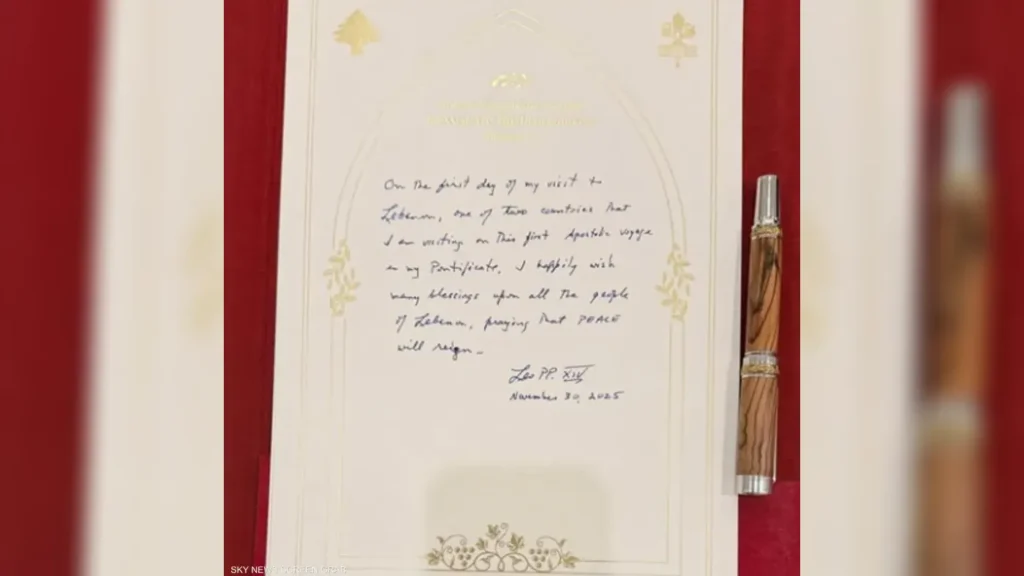 On the first day of my visit to
Lebanon, one of two countries that
I am visiting on this first Apostolic voyage
in my Pontificate, I happily wish
many blessings upon all the people
of Lebanon, praying that PEACE
will reign.
Leo PP. XIV
November 30, 2025
SKY NEWS